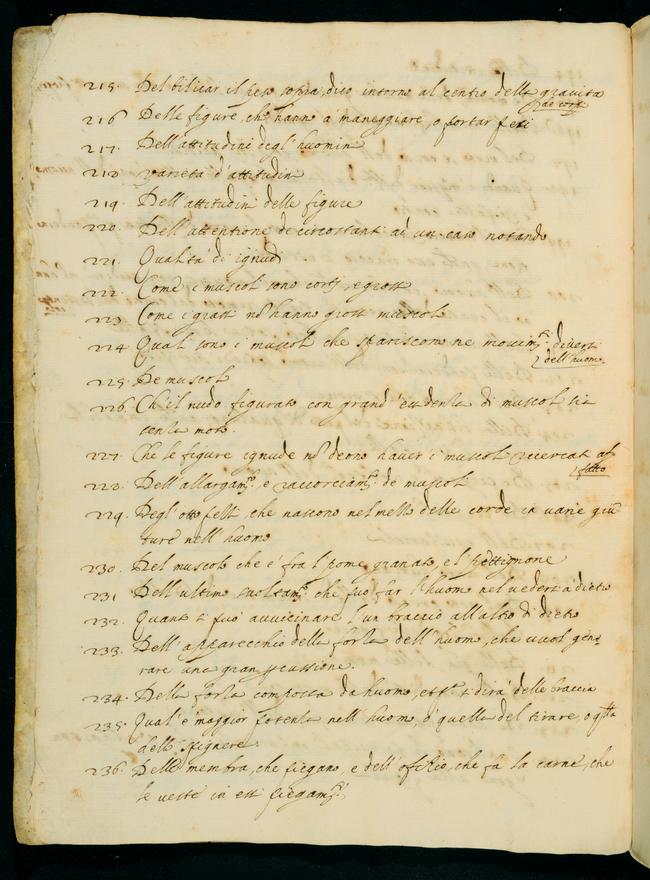 215. Del bilicar il peso sopra, dico intorno al centro della gravita
de corpi
216 Delle figure, che hanno à maneggiare, o portar pesi
217. Dell'attitudini degl'huomini
218 varietà d'attitudini
219. Dell'attitudini delle figure
220. Dell'attentione de circostanti ad un caso notando
221. Qualità di ignudi
222. Come i muscoli sono corti, e grossi
223. Come i grassi nō hanno grossi muscoli
224 Quali sono i muscoli che spariscono ne movim.ti diversi
dell'huomo
225. De muscoli
226. Ch'il nudo figurato con grand'euidenza di muscoli sia
senza moto.
227. Che le figure ignude nō deono hauer i muscoli ricercati af
fatto
228. Dell'allargam.to e raccorciam.to de muscoli
229. Degl'ossi felli che nascono nel mello delle corde in varie giū
ture nell'huomo
230. Del muscolo che è fra l pome granato, e'l pettignone
231 Dell'ultimo suoltam.to che può far l'huomo nel vedersi à dietro
232. Quanto si può avvicinare l'un braccio all'altro di dietro
233. Dell'apparecchio della forza dell'huomo, che vuol gene
rare una gran percussione.
234. Della forza composta da huomo, et p.a si dirà delle braccia
235. Qual'è maggior potenza nell'huomo, ò quella del tirare, o q.lla
dello spignere.
236. Delle membra, che piegano, e dell'offizio, che fà la carne, che
le veste in essi piegam.ti